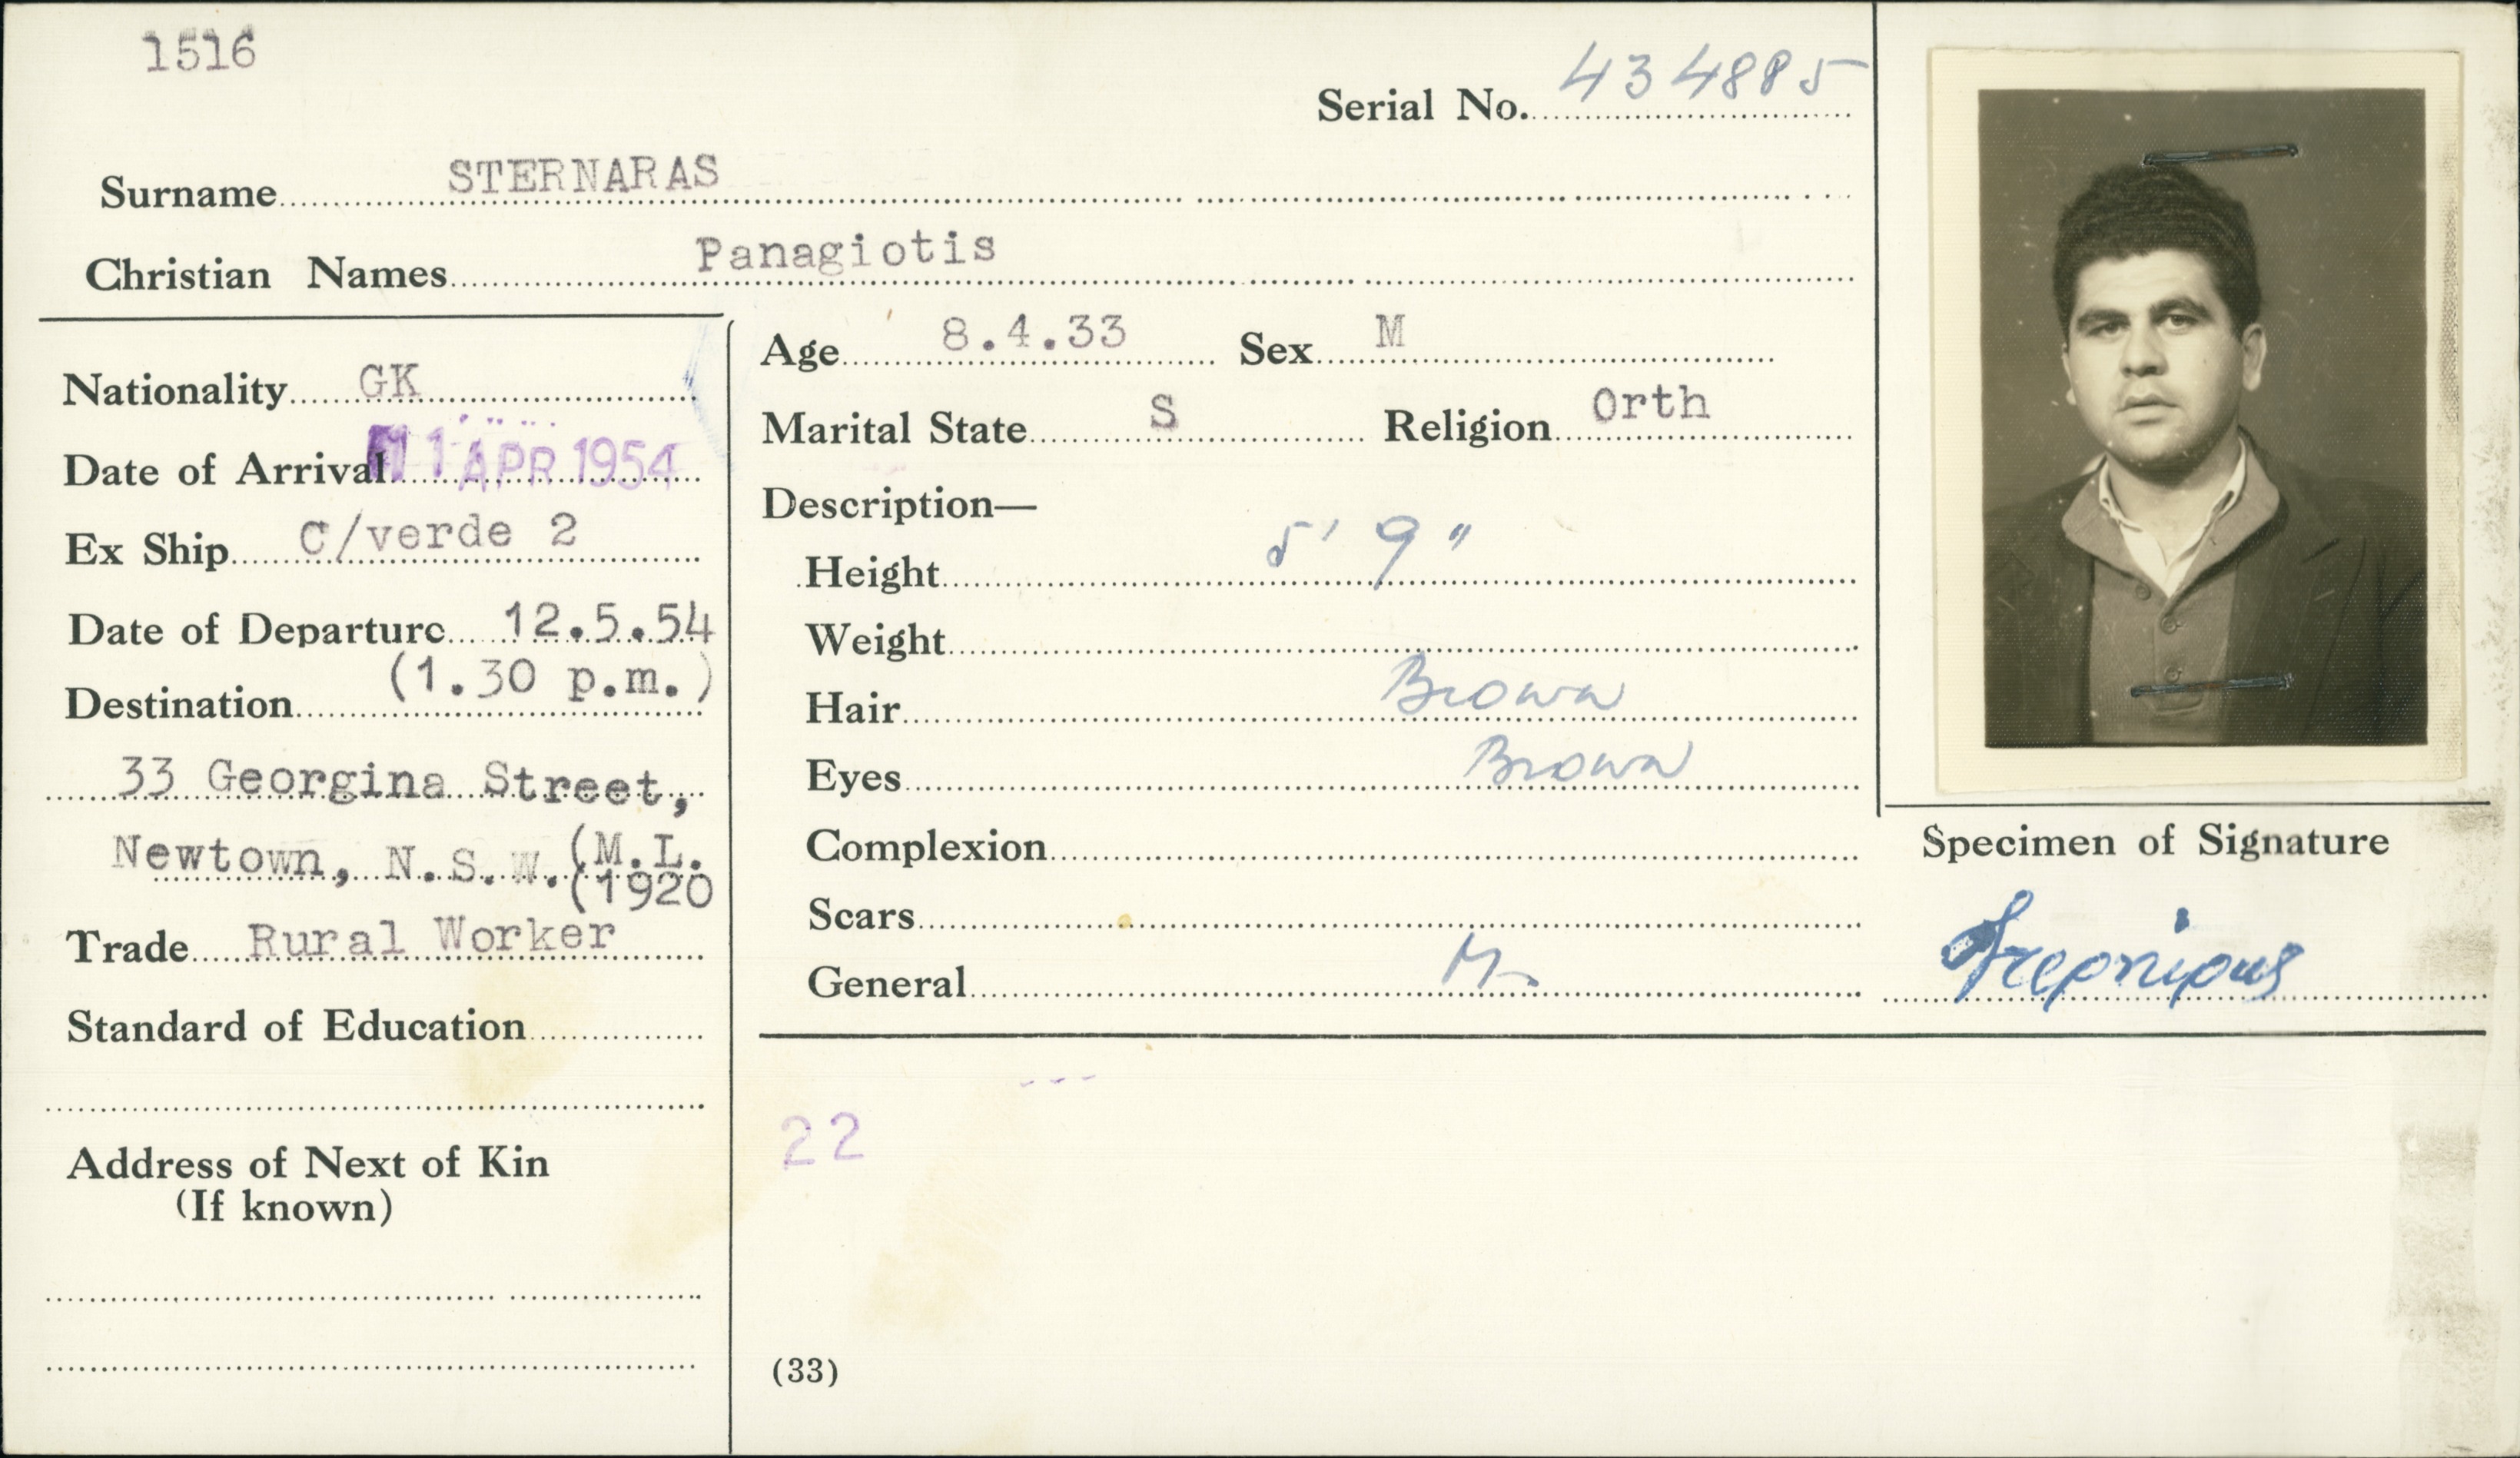 1516
Serial No. 434885
Surname STERNARAS
Christian Names Panagiotis
Nationality GK
Date of Arrival 1 APR 1954
Ex Ship C/verde 2
Date of Departure 12.5.54
(1.30 p.m.)
Destination
33 Georgina Street,
Newtown, N.S.W. (M.L.
(1920
Trade Rural Worker
Standard of Education
Address of Next of Kin
(If known)
Age 8.4.33 Sex M
Marital State S Religion Orth
Description—
Height 5' 9"
Weight
Hair Brown
Eyes Brown
Complexion
Scars
General
22
(33)
Specimen of Signature